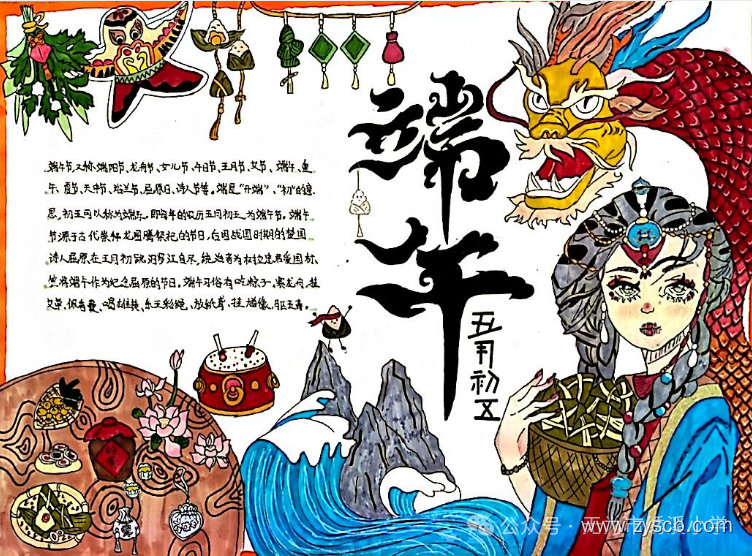 端午
五月初五
端午节又称端阳节、龙舟节、女儿节、午日节、五月节、艾节、端午、重
午、夏节、天中节、浴兰节、屈原日、诗人节等。端是“开端”、“初”的意
思,初五可以称为端午。即每年的农历五月初五为端午节。端午
节源于古代崇拜龙图腾祭祀的节日,后因战国时期的楚国
诗人屈原在五月初跳汨罗江自尽,统治者为树立忠君爱国标
签将端午作为纪念屈原的节日。端午习俗有吃粽子、赛龙舟、挂
艾草、佩香囊、喝雄黄、系五彩绳、放纸鸢、挂 像、 五毒。
公众号·
www.zyscb.com